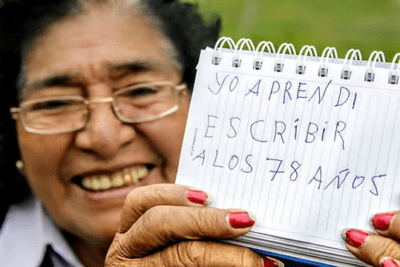 YO APRENDI
ESCRIBIR
¡A LOS 78 AÑOS